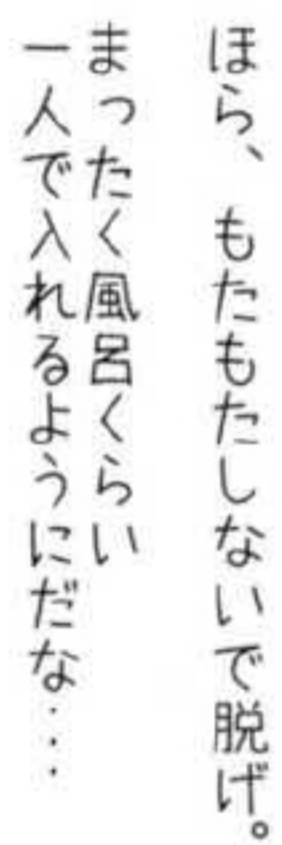 ほら、もたもたしないで脱げ。
まったく風呂くらい
一人で入れるようにだな…